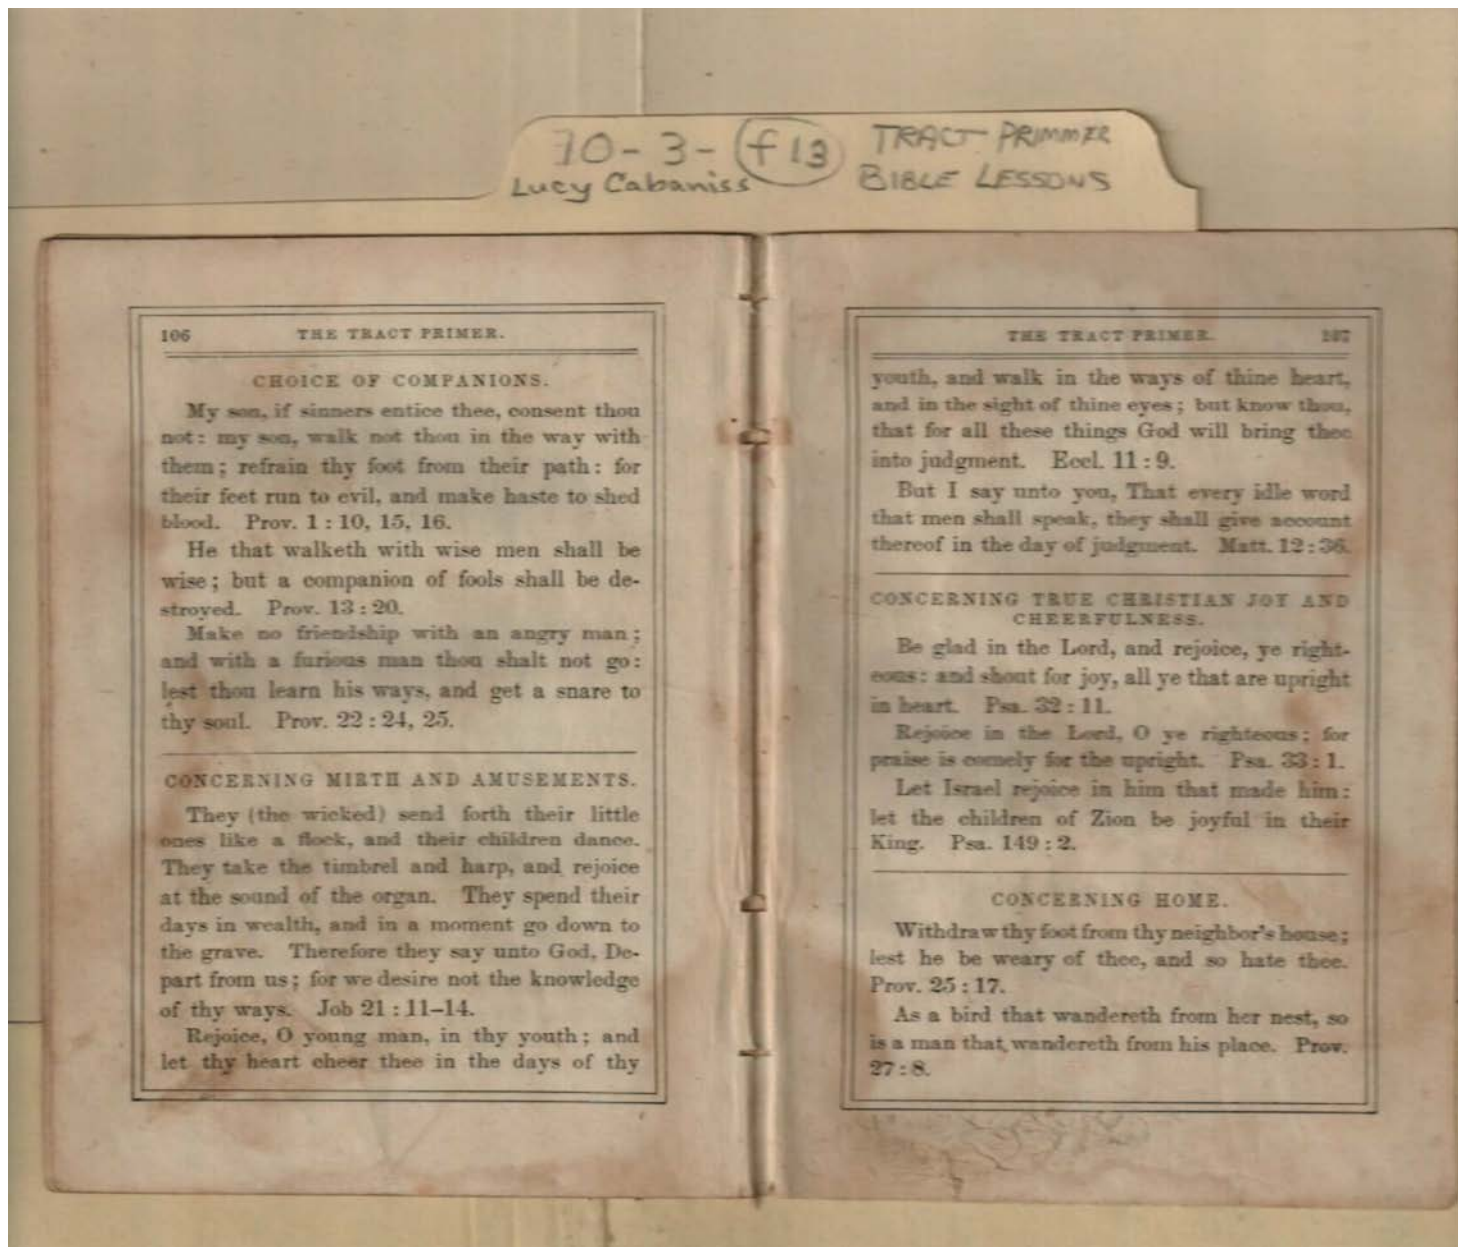 70-3-f13 TRACT PRIMMER
Lucy Cabaniss BIBLE LESSONS
106 THE TRACT PRIMER.
CHOICE OF COMPANIONS.
My son, if sinners entice thee, consent thou
not: my son, walk not thou in the way with
them; refrain thy foot from their path: for
their feet run to evil, and make haste to shed
blood. Prov. 1:10, 15, 16.
He that walketh with wise men shall be
wise; but a companion of fools shall be de-
stroyed. Prov. 13:20.
Make no friendship with an angry man;
and with a furious man thou shalt not go:
lest thou learn his ways, and get a snare to
thy soul. Prov. 22:24, 25.
CONCERNING MIRTH AND AMUSEMENTS.
They (the wicked) send forth their little
ones like a flock, and their children dance.
They take the timbrel and harp, and rejoice
at the sound of the organ. They spend their
days in wealth, and in a moment go down to
the grave. Therefore they say unto God, De-
part from us; for we desire not the knowledge
of thy ways. Job 21:11–14.
Rejoice, O young man, in thy youth; and
let thy heart cheer thee in the days of thy
THE TRACT PRIMER. 107
youth, and walk in the ways of thine heart,
and in the sight of thine eyes; but know thou,
that for all these things God will bring thee
into judgment. Eccl. 11:9.
But I say unto you, That every idle word
that men shall speak, they shall give account
thereof in the day of judgment. Matt. 12:36.
CONCERNING TRUE CHRISTIAN JOY AND
CHEERFULNESS.
Be glad in the Lord, and rejoice, ye right-
eous: and shout for joy, all ye that are upright
in heart. Psa. 32:11.
Rejoice in the Lord, O ye righteous; for
praise is comely for the upright. Psa. 33:1.
Let Israel rejoice in him that made him:
let the children of Zion be joyful in their
King. Psa. 149:2.
CONCERNING HOME.
Withdraw thy foot from thy neighbor's house;
lest he be weary of thee, and so hate thee.
Prov. 25:17.
As a bird that wandereth from her nest, so
is a man that wandereth from his place. Prov.
27:8.